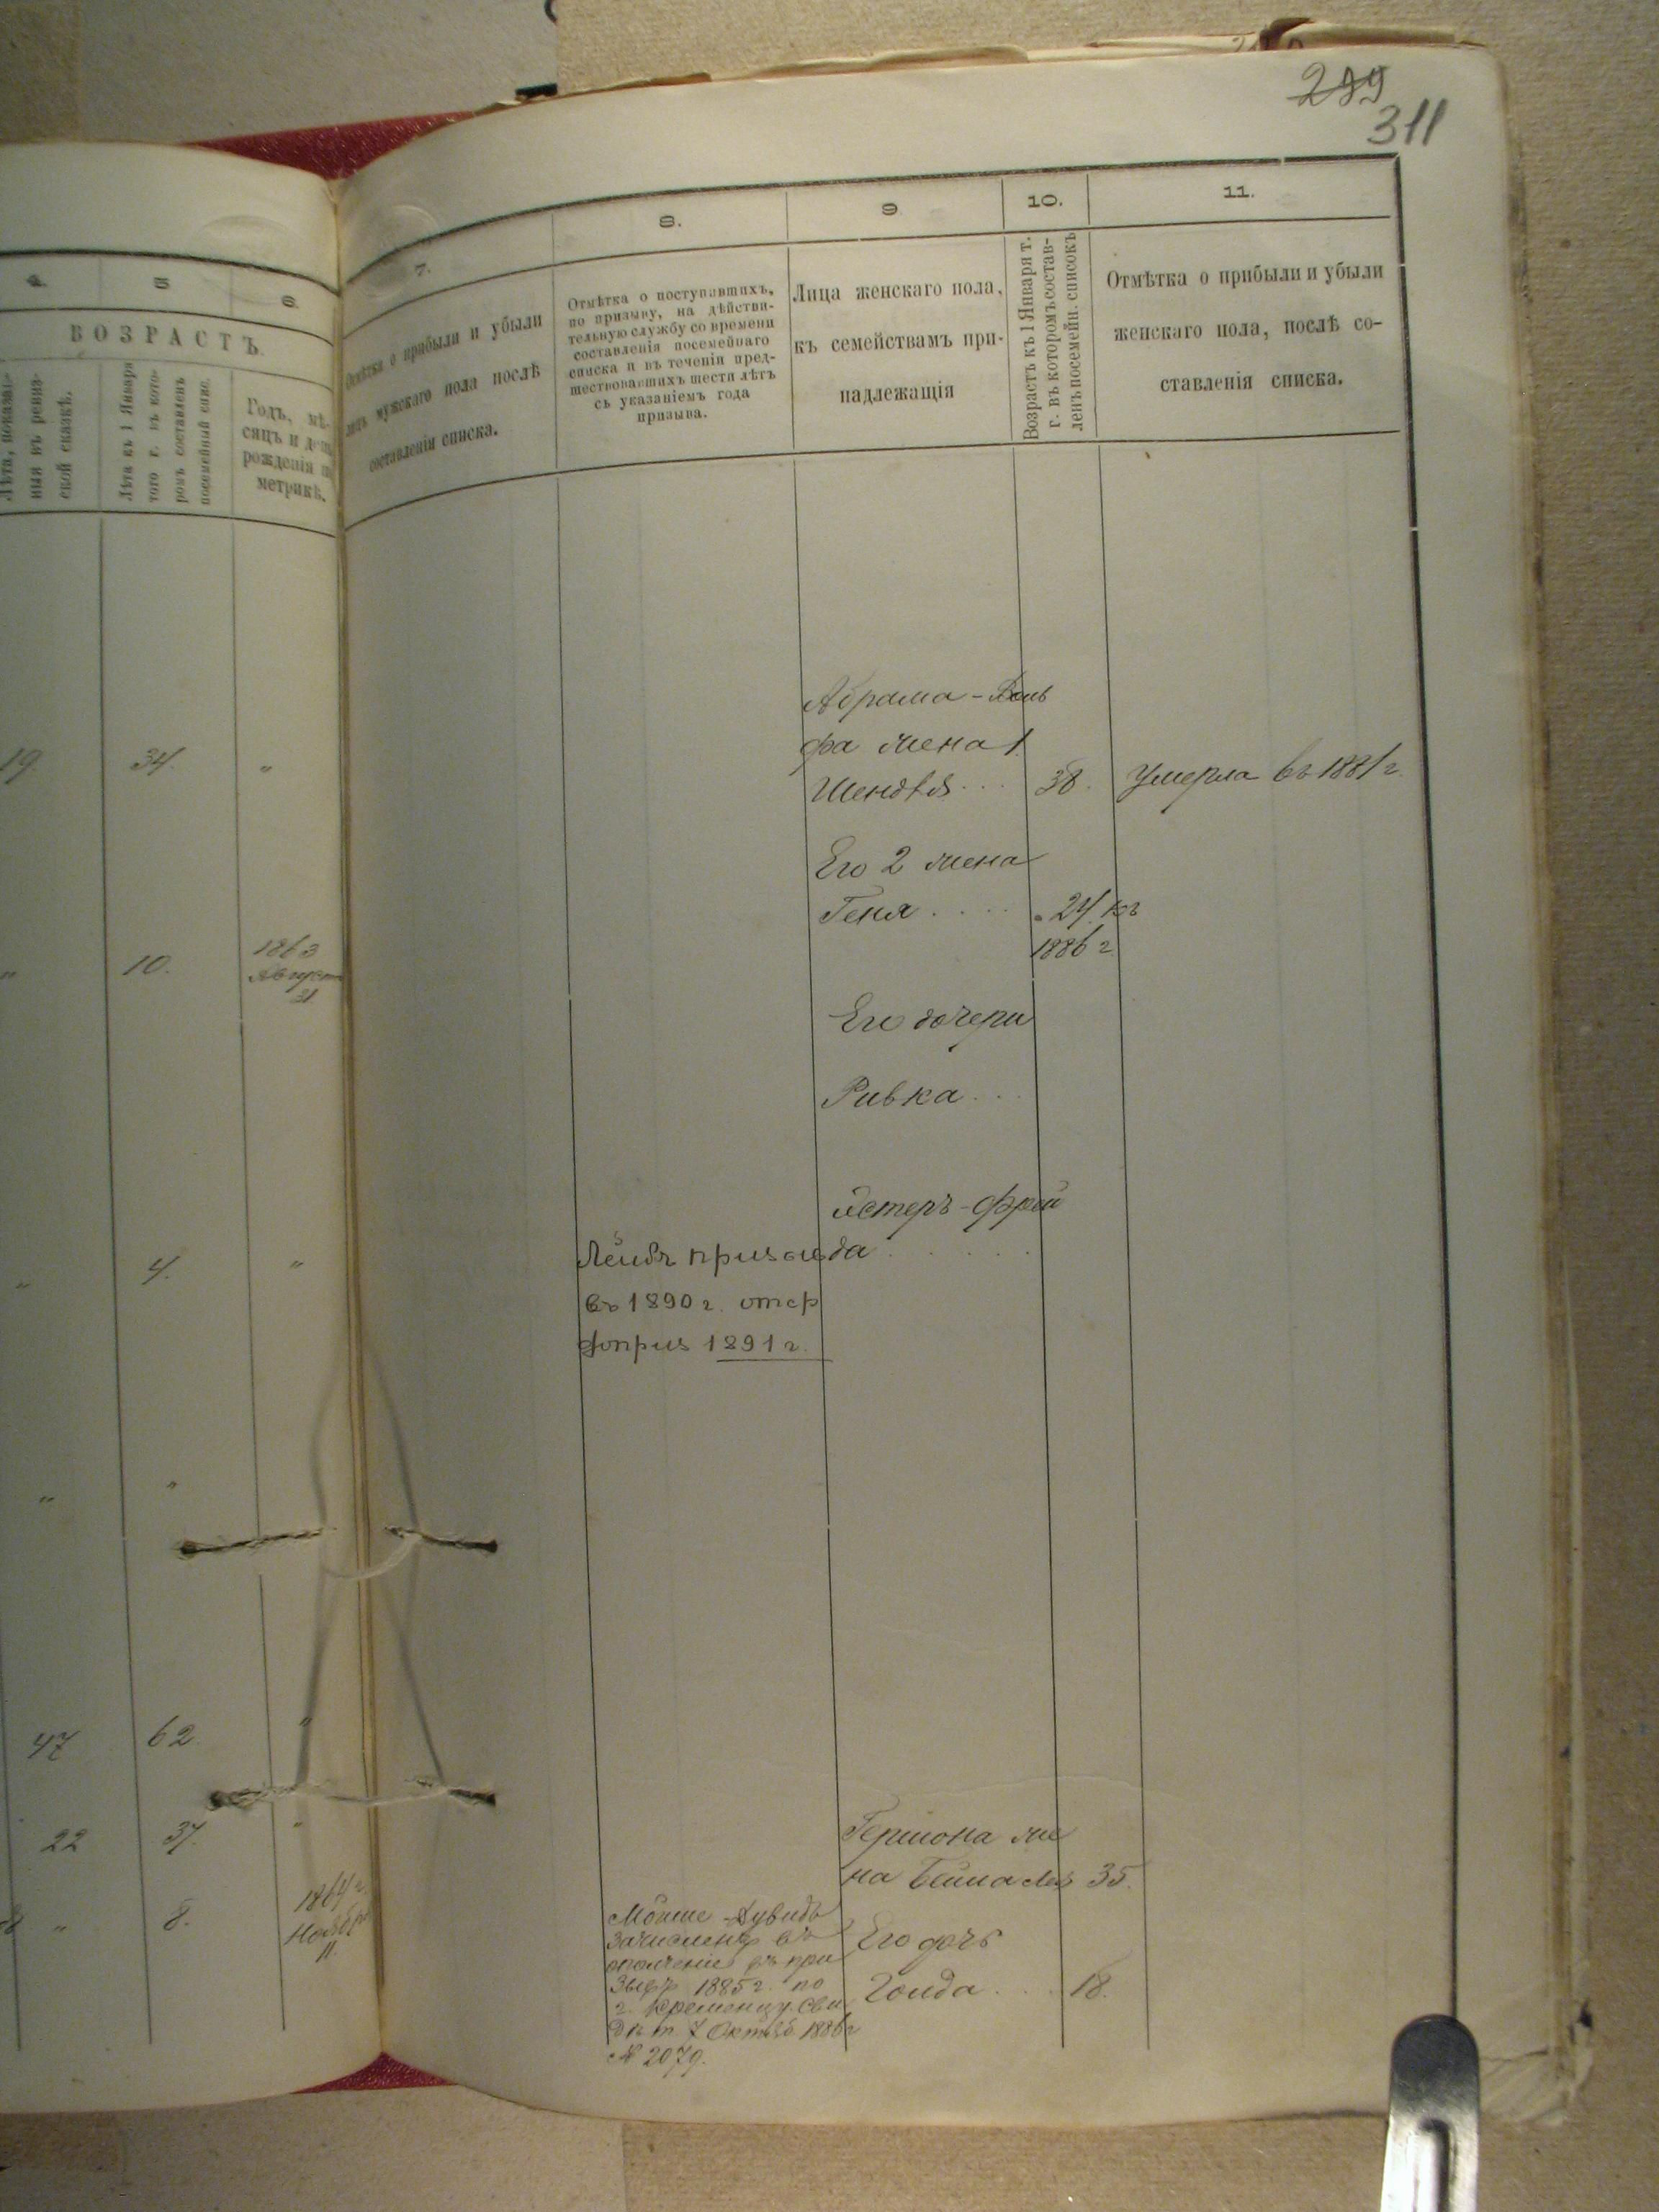 299
311
4.
5
6.
ВОЗРАСТЪ.
Лѣта, показан-
ныя въ ревиз-
ской сказкѣ.
Лѣта къ 1 Января
того г. въ кото-
ромъ составленъ
посемейный спис.
Годъ, мѣ-
сяцъ и день
рожденія по
метрикѣ.
19.
34.
"
"
10.
1863
Августа
31
"
4.
"
"
"
47
62.
"
22
37.
"
"
8.
1864 г.
Ноября
11.
7.
8.
9
10.
11.
Отмѣтка о прибыли и убыли
лицъ мужскаго пола послѣ
составленія списка.
Отмѣтка о поступившихъ,
по призыву, на дѣйстви-
тельную службу со времени
составленія посемейнаго
списка и въ теченіи пред-
шествовавшихъ шести лѣтъ
съ указаніемъ года
призыва.
Лица женскаго пола,
къ семействамъ при-
надлежащія
Возрастъ къ 1 Января т.
г. въ которомъ состав-
ленъ посемейн. списокъ
Отмѣтка о прибыли и убыли
женскаго пола, послѣ со-
ставленія списка.
Абрама-Воль
фа жена 1.
Шендля... 38. Умерла въ 1881 г.
Его 2 жена
Геня.... 24. къ
1886 г.
Его дочери
Ривка...
Эстеръ-Фрей
да......
Лейбъ призыв
въ 1890 г. отср
до приз 1891 г.
Гершона же
на Бейла 35.
Мойше-Дувидъ
зачисленъ въ
ополченіе въ при
зывъ 1885 г. по
г. Кременцу. Сви
дѣт. 7 Октяб 1886 г
№ 2079.
Его дочь
Голда.... 18.